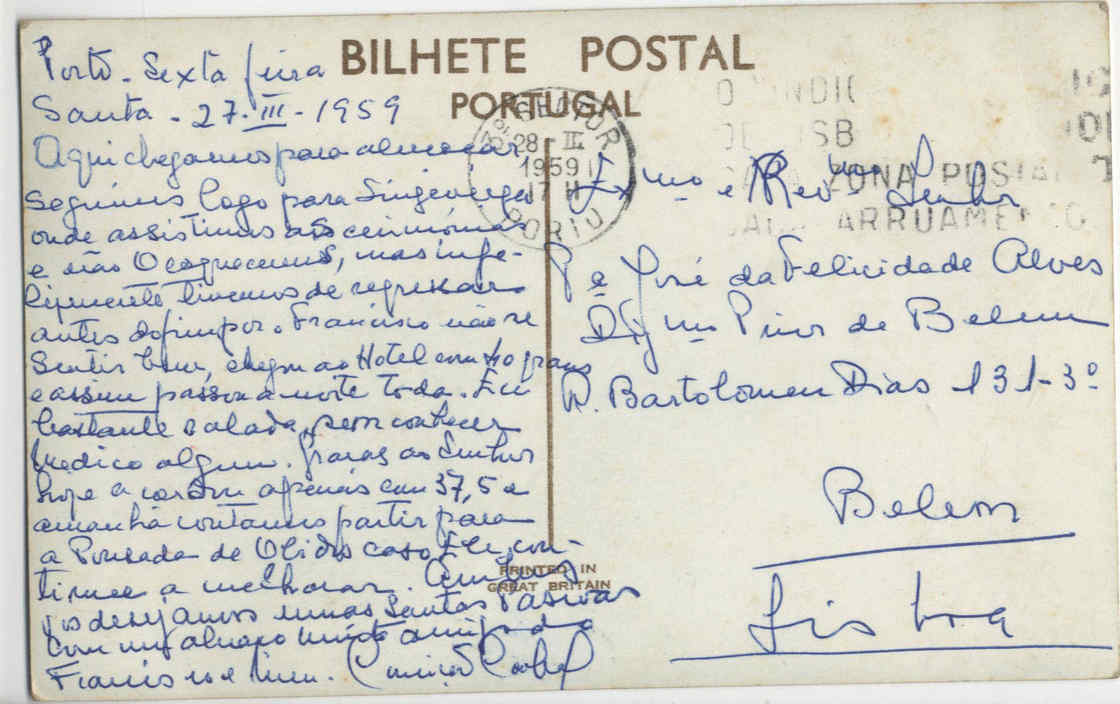 BILHETE POSTAL
PORTUGAL
Porto - Sexta feira
Santa - 27-III-1959
Aqui chegamos para almoçar
Seguimos logo para Singeverga
onde assistimos às cerimónias
e não O esquecemos, mas infe-
lizmente tivemos de regressar
antes do fim por o Francisco não se
Sentir bem, chegou ao Hotel com 40 graus
e assim passou a noite toda. Eu
bastante ralada, sem conhecer
médico algum. Graças ao Senhor
hoje acordou apenas com 37,5 e
amanhã contamos partir para
a Pousada de Óbidos caso Ele con-
tinue a melhorar. Ambos
desejamos umas Santas Páscoas
com um abraço muito amigo do
Francisco e meu.
28 III
1959
17 H
PORTO
ZONA POSTAL
ARRUAMENTO
Exmo e Revmo Senhor
Pe José da Felicidade Alves
Digmo Prior de Belem
R. Bartolomeu Dias 131-3º
Belem
Lisboa
PRINTED IN
GREAT BRITAIN